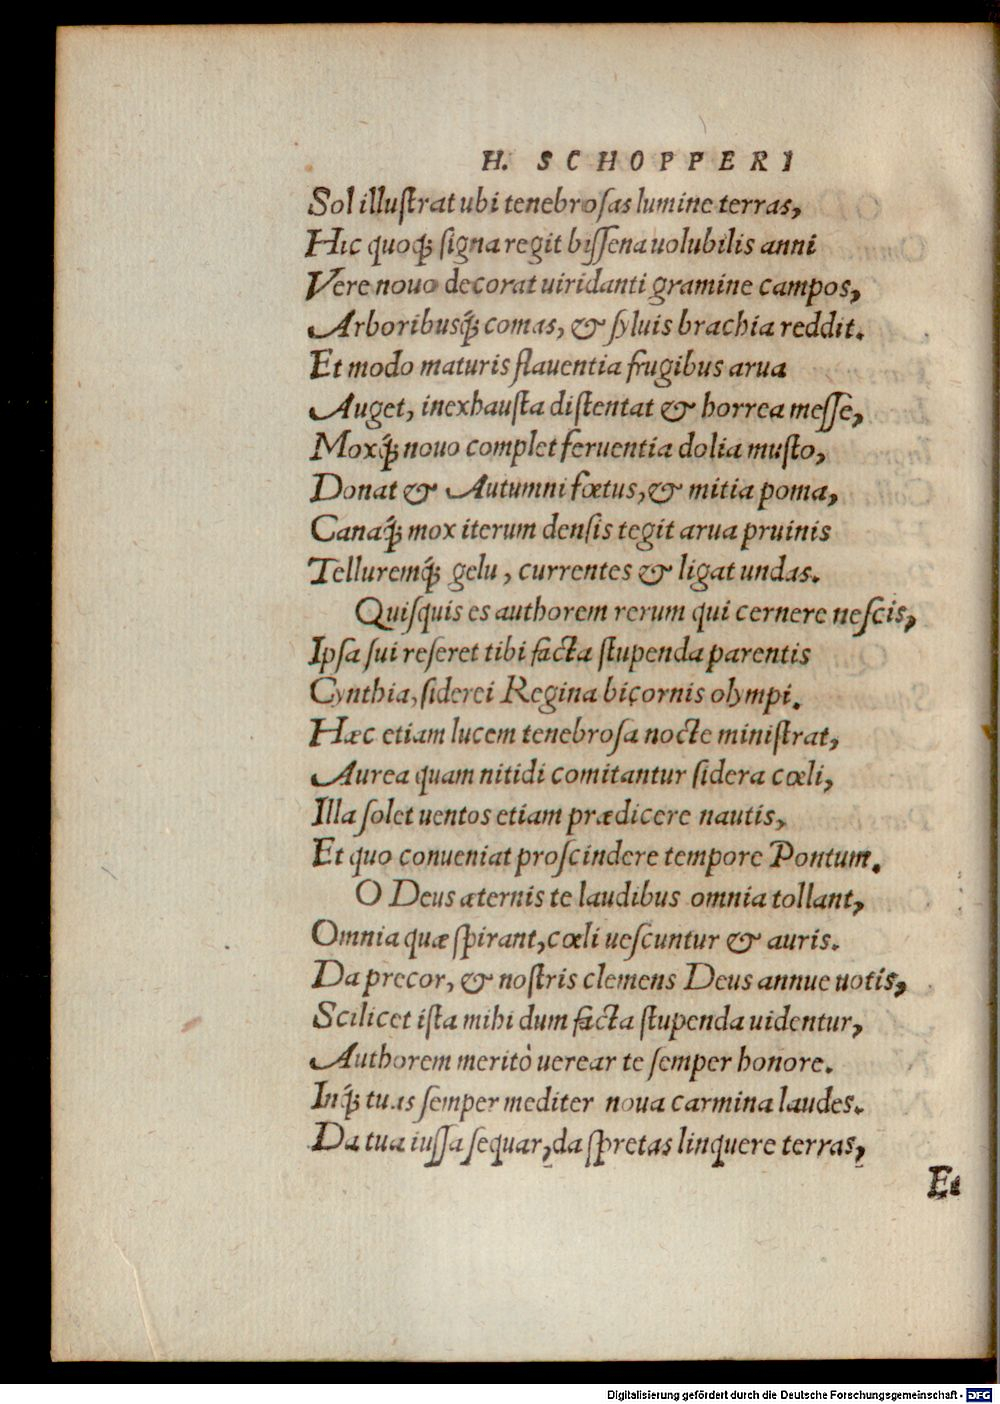 H. SCHOPPERI
Sol illuſtrat ubi tenebroſas lumine terras,
Hic quoq́; ſigna regit biſſena uolubilis anni
Vere nouo decorat uiridanti gramine campos,
Arboribusq́; comas, & ſyluis brachia reddit.
Et modo maturis flauentia frugibus arua
Auget, inexhauſta diſtentat & horrea meſſe,
Moxq́; nouo complet feruentia dolia muſto,
Donat & Autumni fœtus, & mitia poma,
Canaq́; mox iterum denſis tegit arua pruinis
Telluremq́; gelu, currentes & ligat undas.
Quiſquis es authorem rerum qui cernere neſcis,
Ipſa ſui reſeret tibi facta ſtupenda parentis
Cynthia, ſiderei Regina bicornis olympi.
Hæc etiam lucem tenebroſa nocte miniſtrat,
Aurea quam nitidi comitantur ſidera cœli,
Illa ſolet uentos etiam prædicere nautis,
Et quo conueniat proſcindere tempore Pontum.
O Deus æternis te laudibus omnia tollant,
Omnia quæ ſpirant, cœli ueſcuntur & auris.
Da precor, & noſtris clemens Deus annue uotis,
Scilicet iſta mihi dum facta ſtupenda uidentur,
Authorem meritò uerear te ſemper honore.
Inq́; tuas ſemper mediter noua carmina laudes.
Da tua iuſſa ſequar, da ſpretas linquere terras,
Et
Digitalisierung gefördert durch die Deutsche Forschungsgemeinschaft - DFG